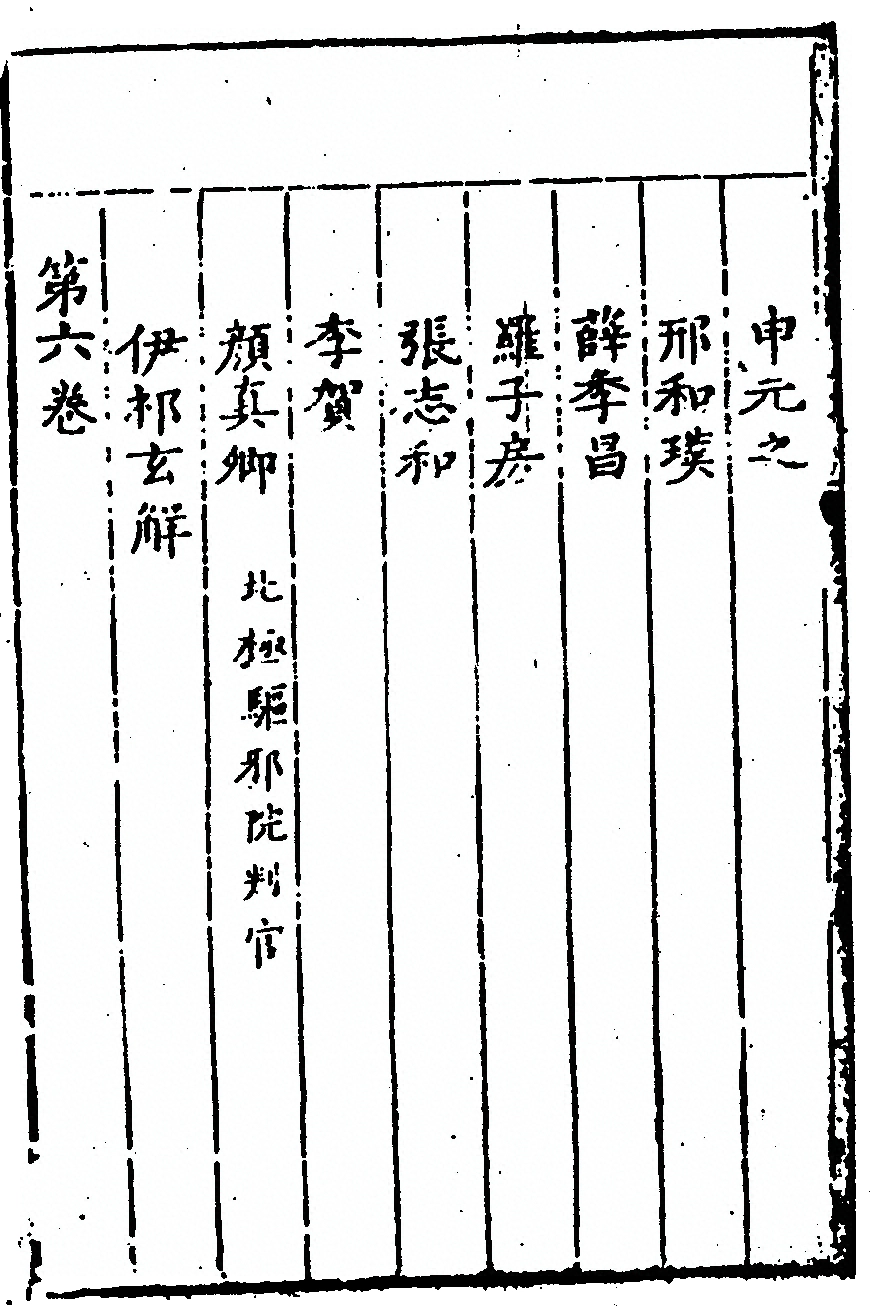 申元之
邢和璞
薛季昌
羅子房
張志和
李賀
顔真卿 北極驅邪院判官
伊祁玄解
第六卷